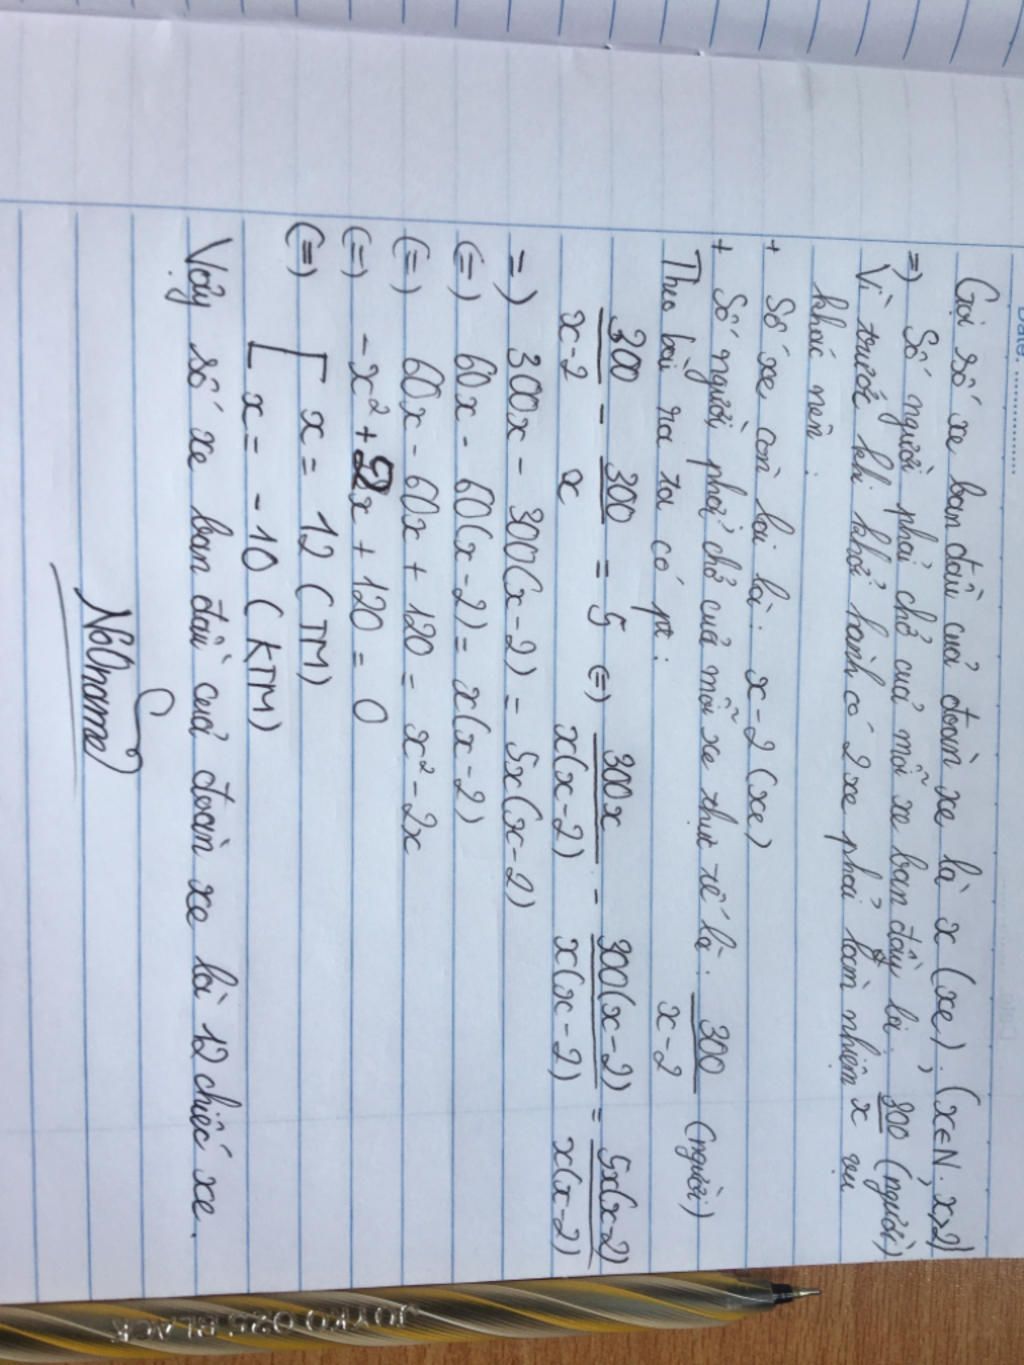 Date: ....................
Gọi số xe ban đầu của đoàn xe là x (xe). (x∈N, x>2)
=) Số người phải chở của mỗi xe ban đầu là: 300/x (người)
Vì trước khi khởi hành có 2 xe phải làm nhiệm vụ
khác nên:
+ Số xe còn lại là: x-2 (xe)
+ Số người phải chở của mỗi xe thực tế là: 300/(x-2) (người)
Theo bài ra ta có pt:
300/(x-2) - 300/x = 5 (=) 300x/(x(x-2)) - 300(x-2)/(x(x-2)) = 5x(x-2)/(x(x-2))
=) 300x - 300(x-2) = 5x(x-2)
(=) 60x - 60(x-2) = x(x-2)
(=) 60x - 60x + 120 = x² - 2x
(=) -x² + 2x + 120 = 0
(=) [ x = 12 (TM)
[ x = -10 (KTM)
Vậy số xe ban đầu của đoàn xe là 12 chiếc xe.
No0name
JOYKO 0.25 BLACK